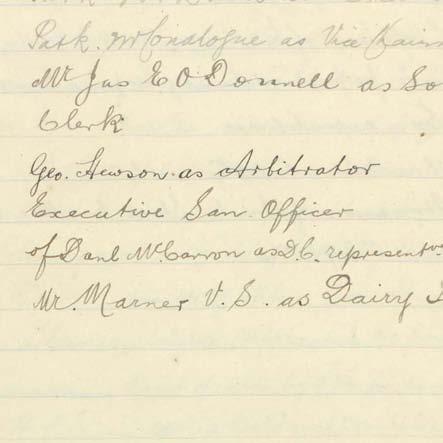 Park. McConalogue as Vice Chairm
Mr Jas E O Donnell as So
Clerk
Geo. Hewson as Arbitrator
Executive San Officer
of Danl McCarron as D.C. representve
Mr. Marner V. S. as Dairy I